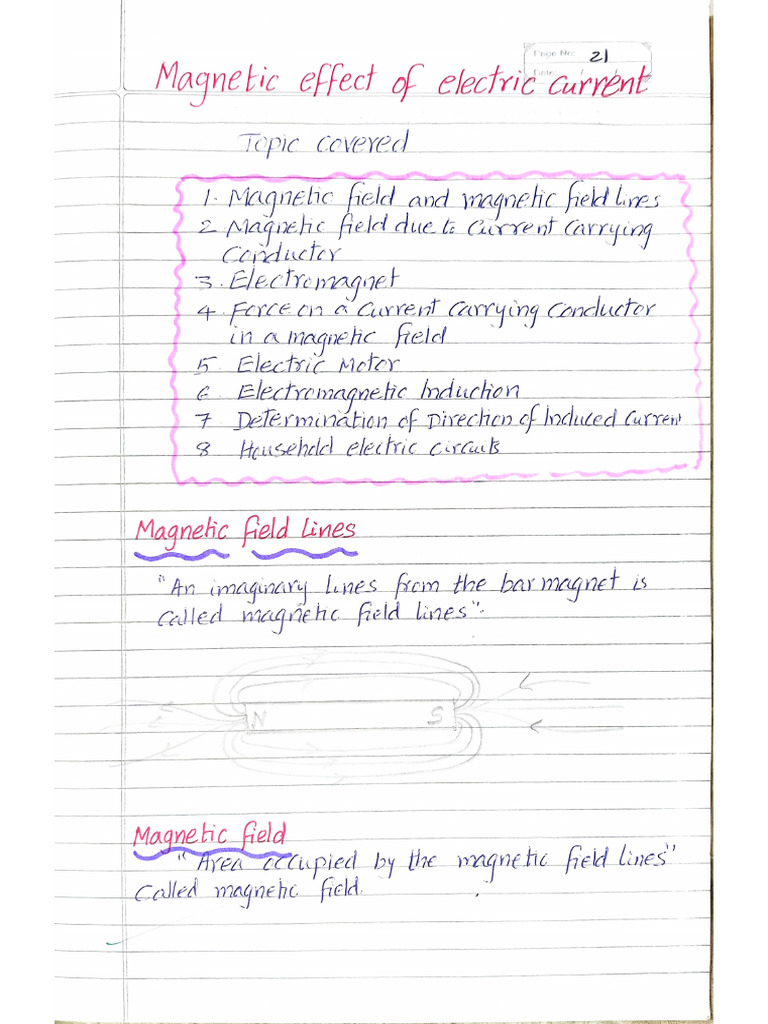 Page No: 21
Date: / /
Magnetic effect of electric current
Topic covered
1. Magnetic field and magnetic field lines
2 Magnetic field due to current carrying
conductor
3. Electromagnet
4. Force on a current carrying conductor
in a magnetic field
5. Electric Motor
6 Electromagnetic Induction
7 Determination of Direction of Induced current
8 Household electric circuits
Magnetic field Lines
"An imaginary lines from the bar magnet is
called magnetic field lines".
N S
Magnetic field
"Area occupied by the magnetic field lines"
called magnetic field.